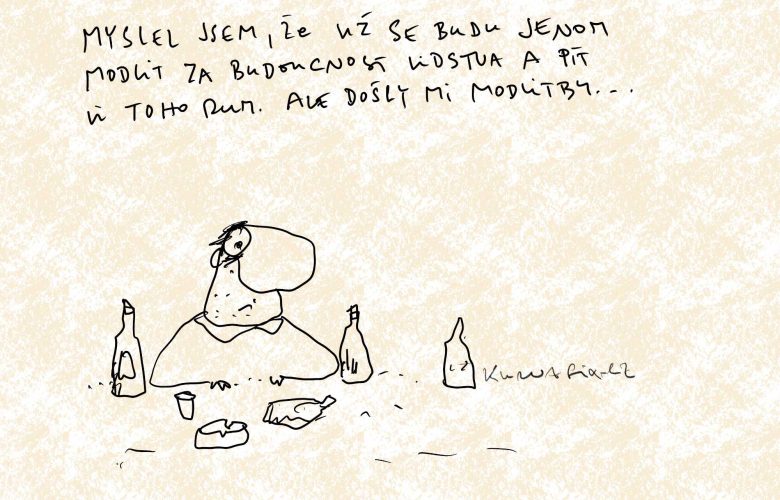 MYSLEL JSEM, ŽE UŽ SE BUDU JENOM
MODLIT ZA BUDOUCNOST LIDSTVA A PÍT
U TOHO RUM. ALE DOŠLY MI MODLITBY...